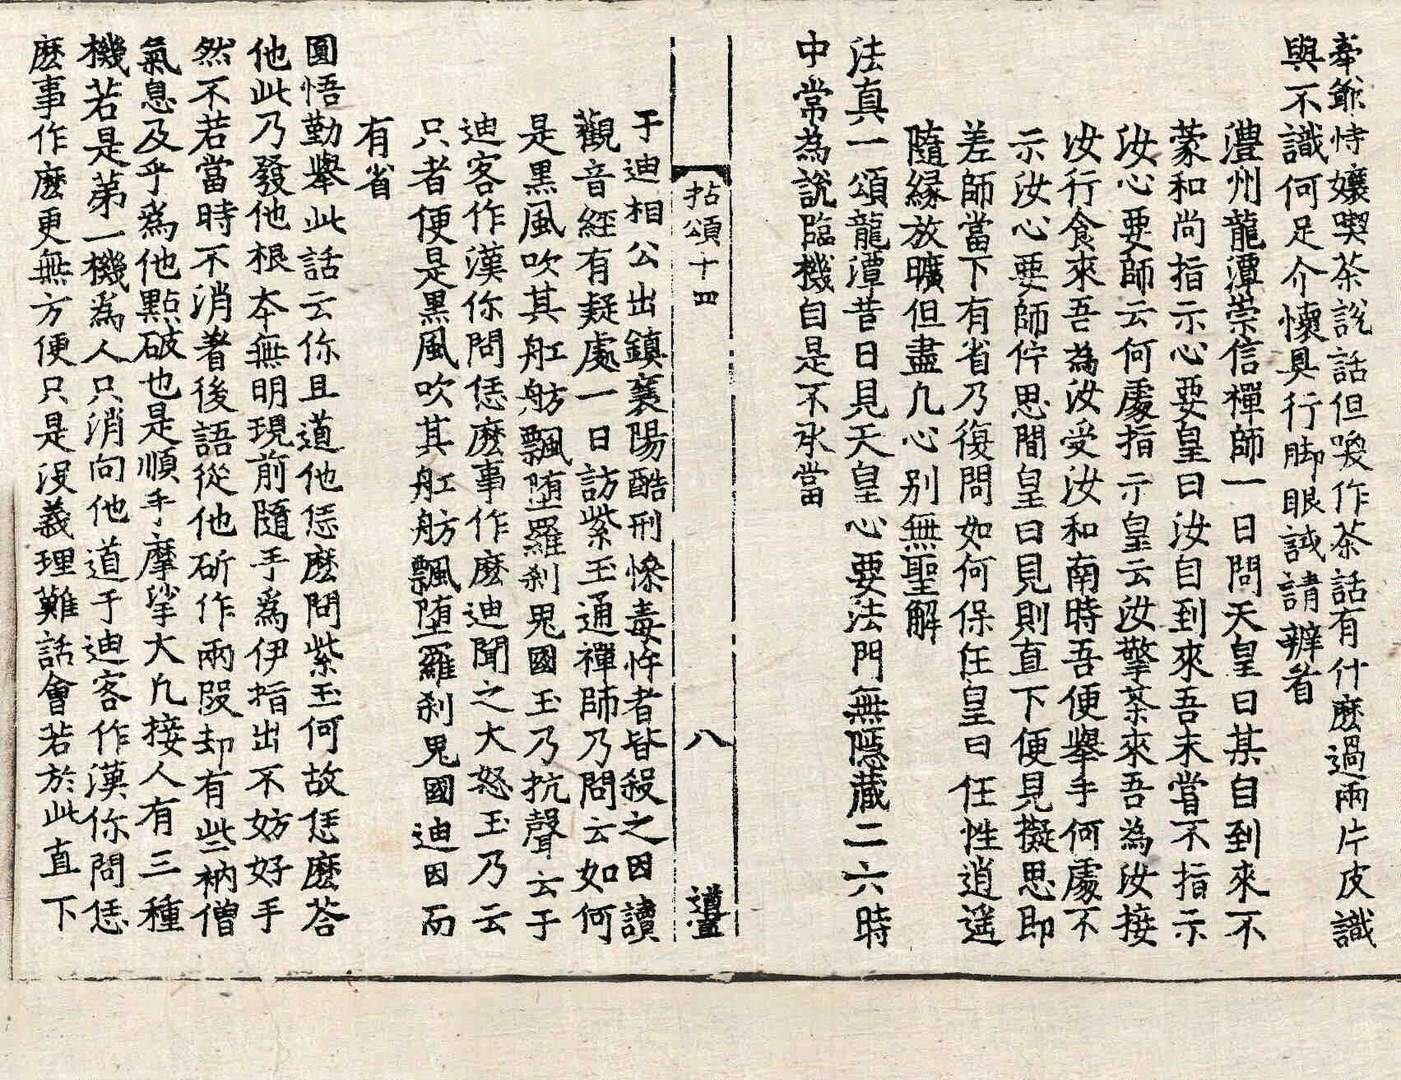 牽爺恃孃喫茶說話但喚作茶話有什麽過兩片皮識
與不識何足介懷具行脚眼試請辨看
澧州龍潭崇信禪師一日問天皇曰某自到來不
蒙和尚指示心要皇曰汝自到來吾未甞不指示
汝心要師云何處指示皇云汝擎茶來吾為汝接
汝行食來吾為汝受汝和南時吾便舉手何處不
示汝心要師佇思間皇曰見則直下便見擬思即
差師當下有省乃復問如何保任皇曰任性逍遥
隨緣放曠但盡凡心别無聖解
法真一頌龍潭昔日見天皇心要法門無隱藏二六時
中常為說臨機自是不承當
拈頌十四
八
于迪相公出鎮襄陽酷刑慘毒忤者皆殺之因讀
觀音經有疑處一日訪紫玉通禪師乃問云如何
是黑風吹其舡舫飄墮羅剎鬼國玉乃抗聲云于
迪客作漢你問恁麽事作麽迪聞之大怒玉乃云
只者便是黑風吹其舡舫飄墮羅剎鬼國迪因而
有省
圓悟勤舉此話云你且道他恁麽問紫玉何故恁麽荅
他此乃發他根本無明現前隨手為伊指出不妨好手
然不若當時不消著後語從他斫作兩段却有些衲僧
氣息及乎為他點破也是順手摩挲大凡接人有三種
機若是第一機為人只消向他道于迪客作漢你問恁
麽事作麽更無方便只是没義理難話會若於此直下